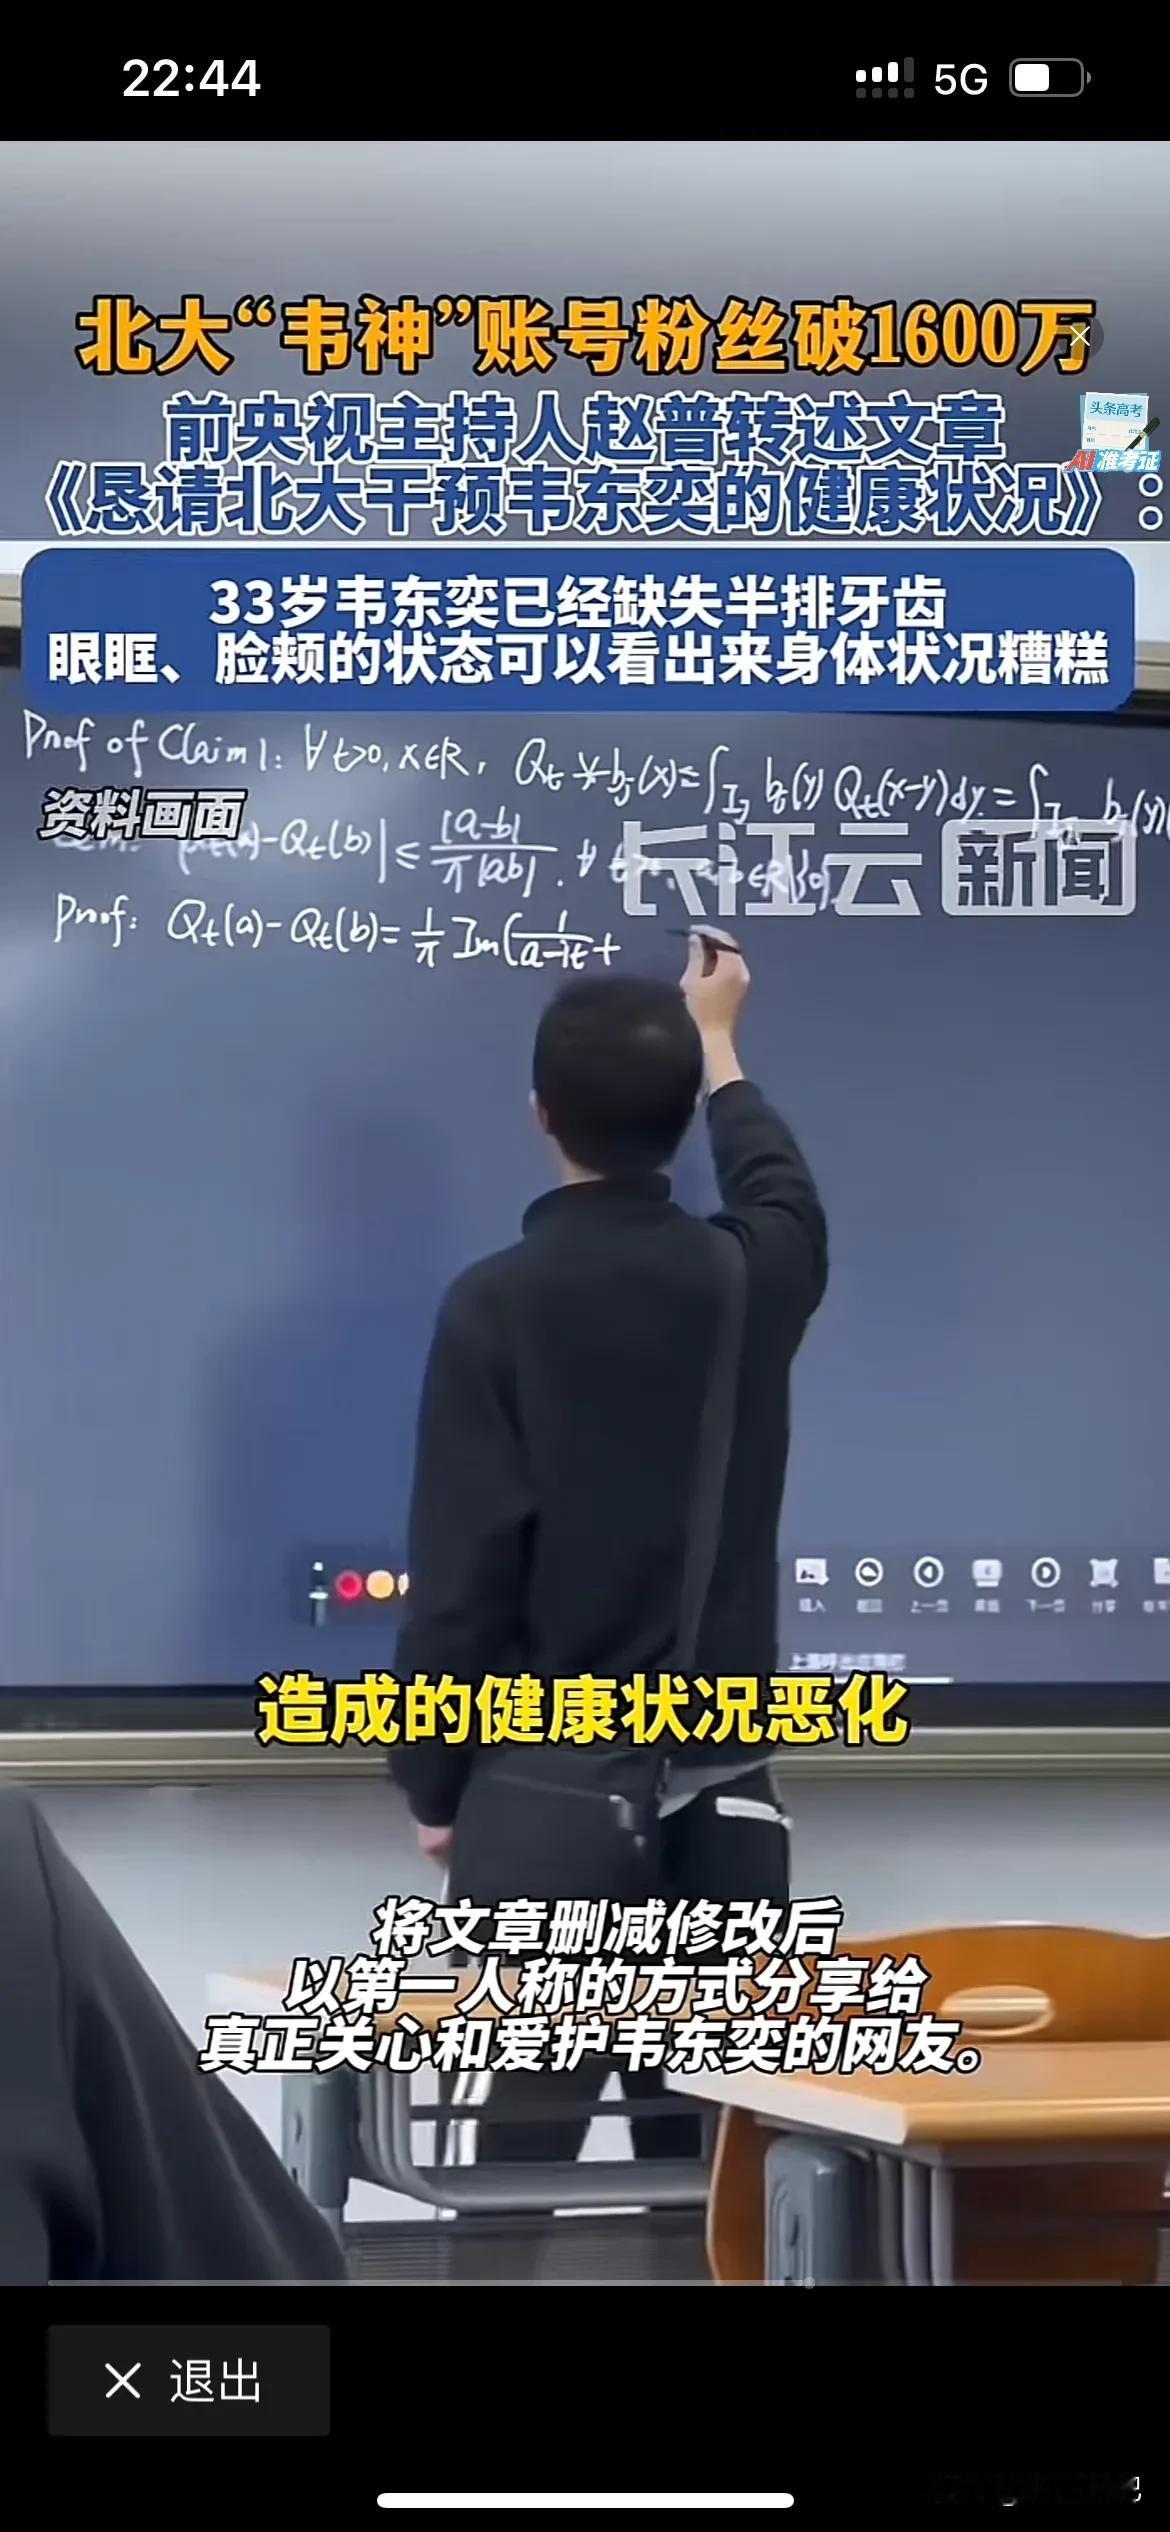 22:44
5G
北大“韦神”账号粉丝破1600万
前央视主持人赵普转述文章
《恳请北大干预韦东奕的健康状况》：
头条高考
AI准考证
33岁韦东奕已经缺失半排牙齿
眼眶、脸颊的状态可以看出来身体状况糟糕
Proof of Claim 1: ∀t>0, x∈R, Qt * bj(x) = ∫Ij bj(y) Qt(x-y)dy = ∫Ij bj(y)
资料画面
-Qt(b)| ≤ |a-b| / π|ab| . ∀
长江云 新闻
Proof: Qt(a)-Qt(b) = 1/π Im(1/a-it +
上一页
下一页
造成的健康状况恶化
将文章删减修改后
以第一人称的方式分享给
真正关心和爱护韦东奕的网友。
退出